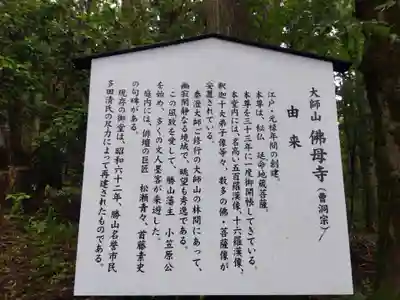 大師山 佛母寺(曹洞宗)
由来
江戸・元禄年間の創建。
本尊は、秘仏 延命地蔵菩薩。
本尊を三十三年に一度御開帳してきている。
本堂内には、名高い五百羅漢像、十六羅漢像、
釈迦十大弟子像等々、数多の佛・菩薩像が
安置されている。
泰澄大師ご修行の大師山の林間にあって、
幽寂閑静なる境域で、眺望も秀逸である。
この風致を愛して、勝山藩主 小笠原公
を始め、多くの文人墨客が来遊した。
庭内には、俳壇の巨匠 松瀬青々、首藤素史
の句碑がある。
現存の御堂は、昭和六十二年、勝山名誉市民、
多田清氏の尽力によって再建されたものである。